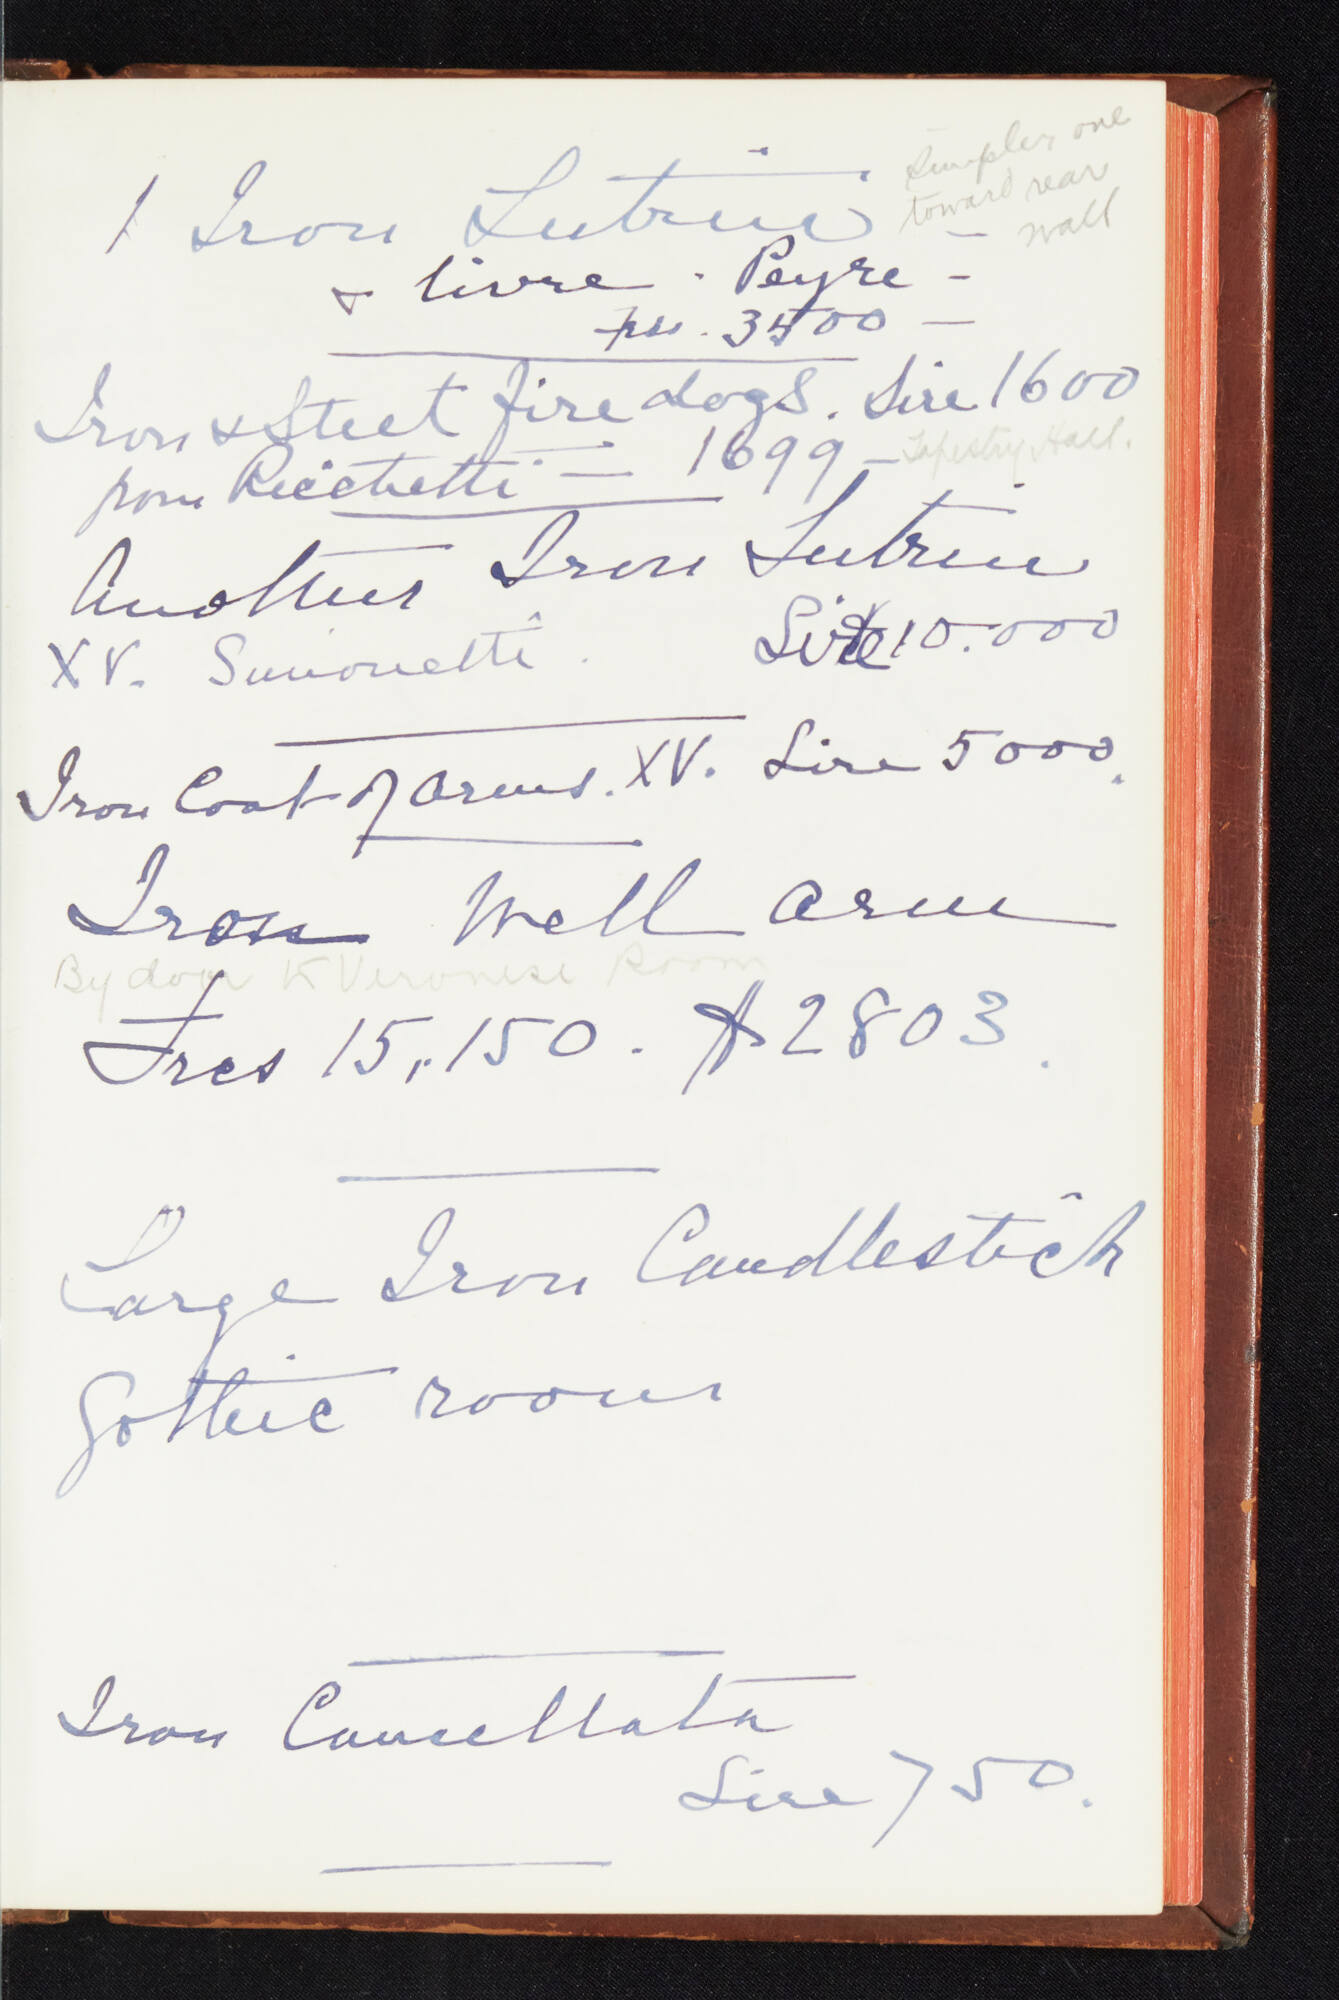 1 Iron Lutrin
simpler one
toward rear
wall
& livre · Peyre -
frs. 3500 -
Iron & Steel fire dogs. Lire 1600
from Ricchetti - 1699 - Tapestry Hall.
Another Iron Lutrin
XV. Simonetti. Lire 10.000
Iron Coat of arms. XV. Lire 5000.
Iron Well arm
By door to Veronese Room
Frcs 15,150. $2803.
Large Iron Candlestick
Gothic room
Iron Cancellata
Lire 750.